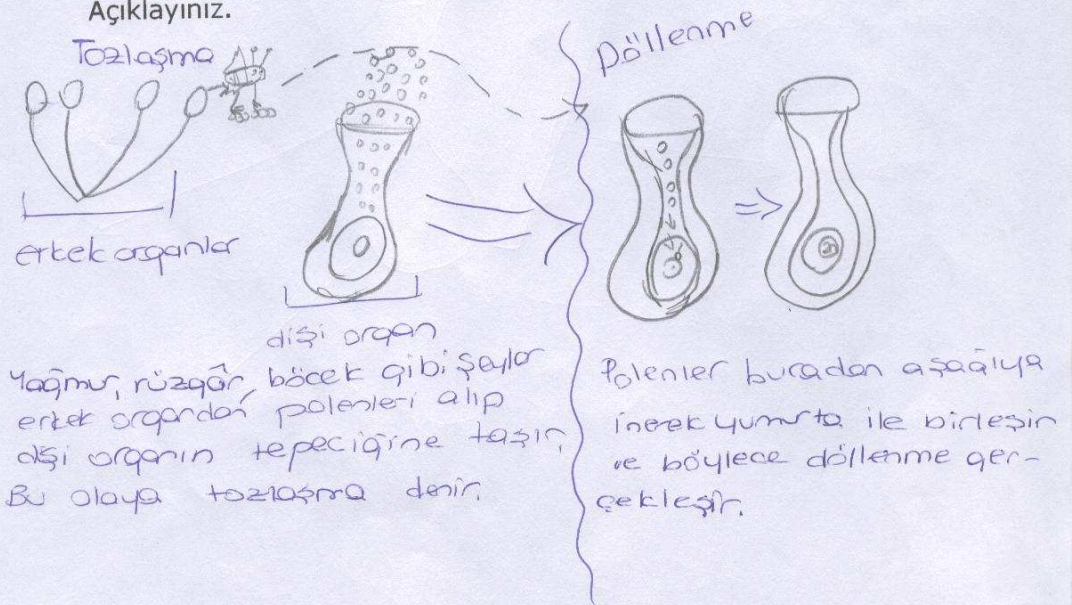 Açıklayınız.
Tozlaşma
erkek organlar
dişi organ
Yağmur, rüzgâr, böcek gibi şeyler
erkek organdan polenleri alıp
dişi organın tepeciğine taşır.
Bu olaya tozlaşma denir.
Döllenme
Polenler buradan aşağıya
inerek yumurta ile birleşir
ve böylece döllenme ger-
çekleşir.